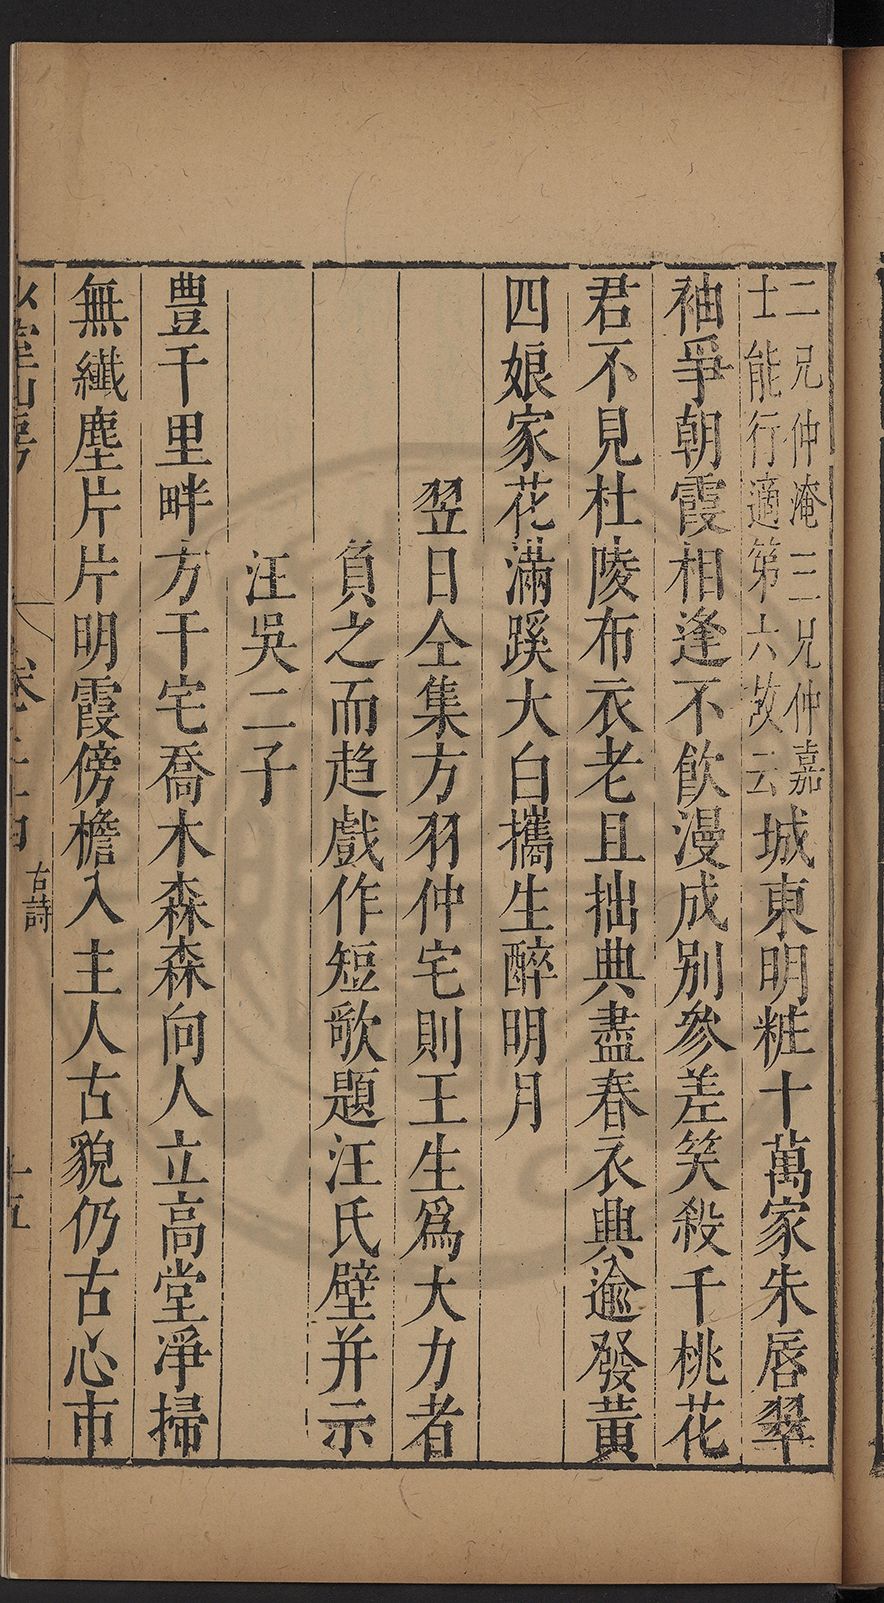 二兄仲淹三兄仲嘉
士能行適第六故云
城東明粧十萬家朱唇翠
袖爭朝霞相逢不飲漫成別參差笑殺千桃花
君不見杜陵布衣老且拙典盡春衣興逾發黃
四娘家花滿蹊大白攜生醉明月
翌日仝集方羽仲宅則王生爲大力者
負之而趋戲作短歌題汪氏壁并示
汪吳二子
豊干里畔方干宅喬木森森向人立高堂淨掃
無纖塵片片明霞傍檐入主人古貌仍古心市
山房
古詩
十五